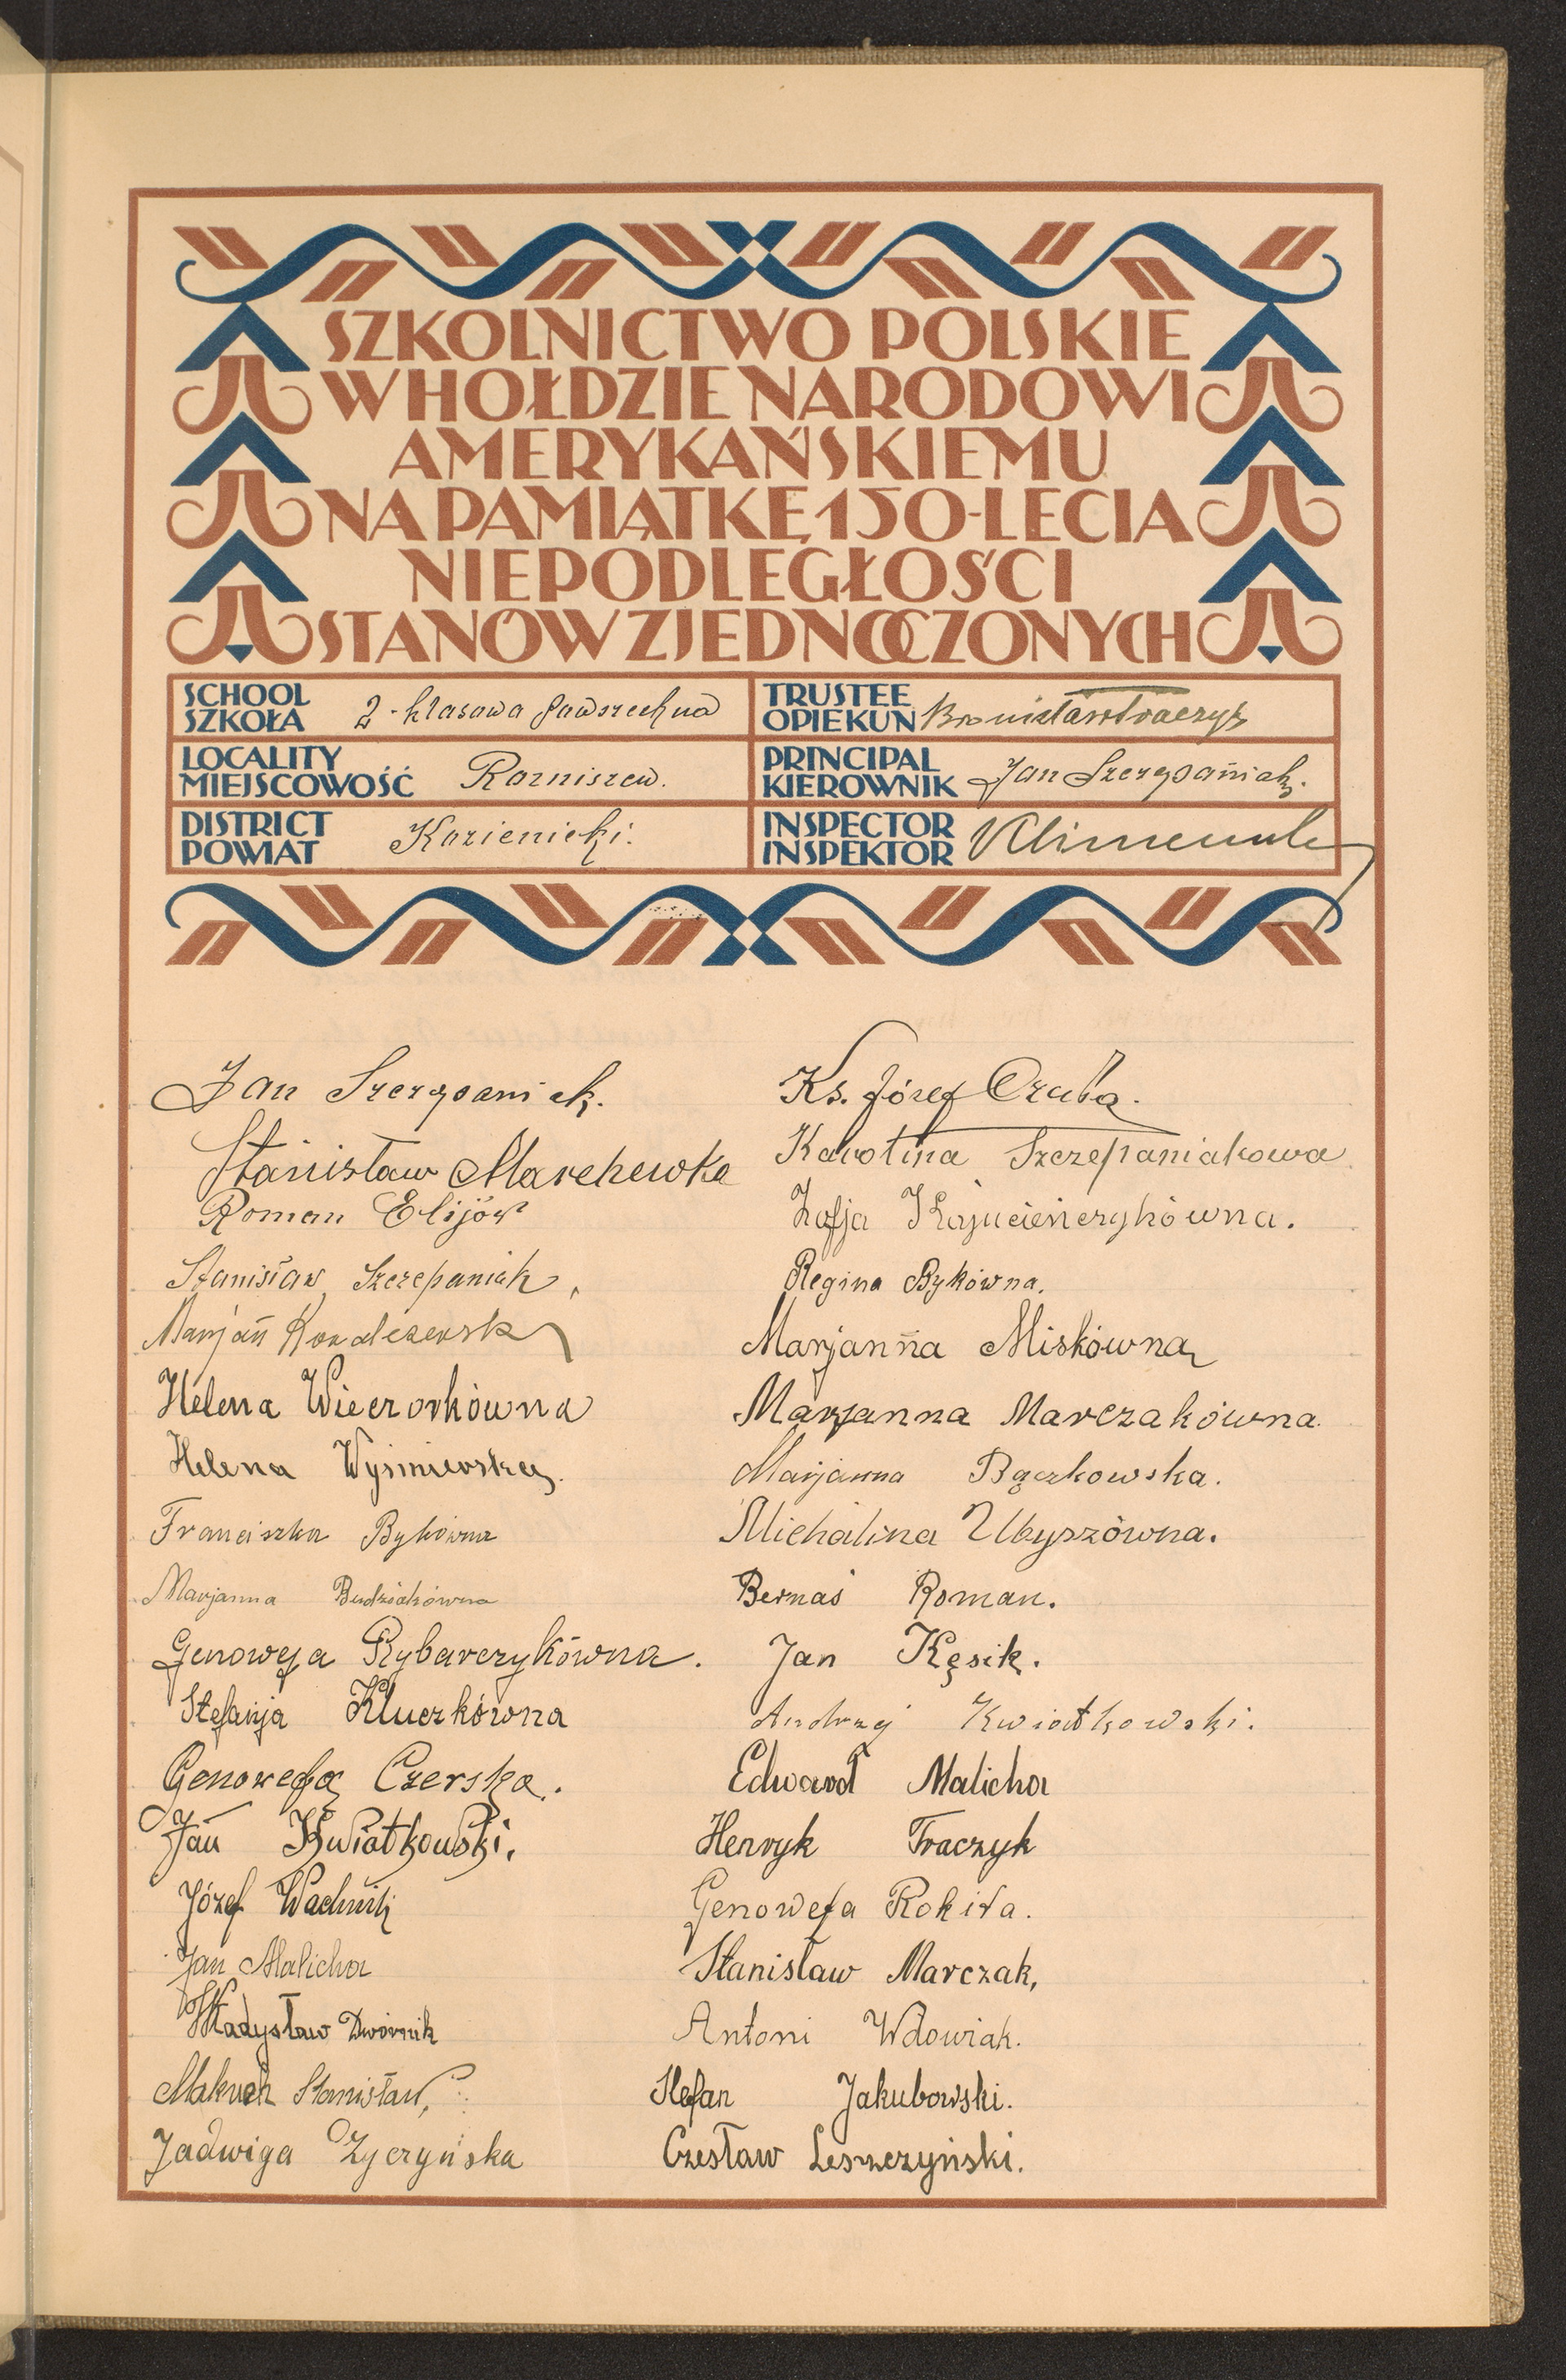 SZKOLNICTWO POLSKIE
W HOŁDZIE NARODOWI
AMERYKAŃSKIEMU
NA PAMIĄTKĘ 150-LECIA
NIEPODLEGŁOŚCI
STANÓW ZJEDNOCZONYCH
SCHOOL
SZKOŁA
2-klasowa powszechna
TRUSTEE
OPIEKUN
Bronisław Traczyk
LOCALITY
MIEJSCOWOŚĆ
Rozniszew.
PRINCIPAL
KIEROWNIK
Jan Szczepaniak.
DISTRICT
POWIAT
Kozienicki.
INSPECTOR
INSPEKTOR
Jan Szczepaniak.
Stanisław Marchewka
Roman Elijów
Stanisław Szczepaniak,
Marjan Kowalczewski
Helena Wieczorkówna
Helena
Franciszka Bykówna
Marjanna Budziakówna
Genowefa Rybarczykówna.
Stefanja Kluczkówna
Genowefa Czerska.
Jan Kwiatkowski.
Józef Wachnik
Jan Malicha
Władysław Dwórnik
Makuch Stanisław,
Jadwiga Życzyńska
Ks. Józef Czuba.
Karolina Szczepaniakowa
Zofja
Regina Bykówna.
Marjanna Miskówna
Marjanna Marczakówna.
Marjanna Bączkowska.
Michalina Ubyszówna.
Bernaś Roman.
Jan Kęsik.
Andrzej Kwiatkowski.
Edward Malicha
Henryk Traczyk
Genowefa Rokita.
Stanisław Marczak,
Antoni Wdowiak.
Stefan Jakubowski.
Czesław Leszczyński.